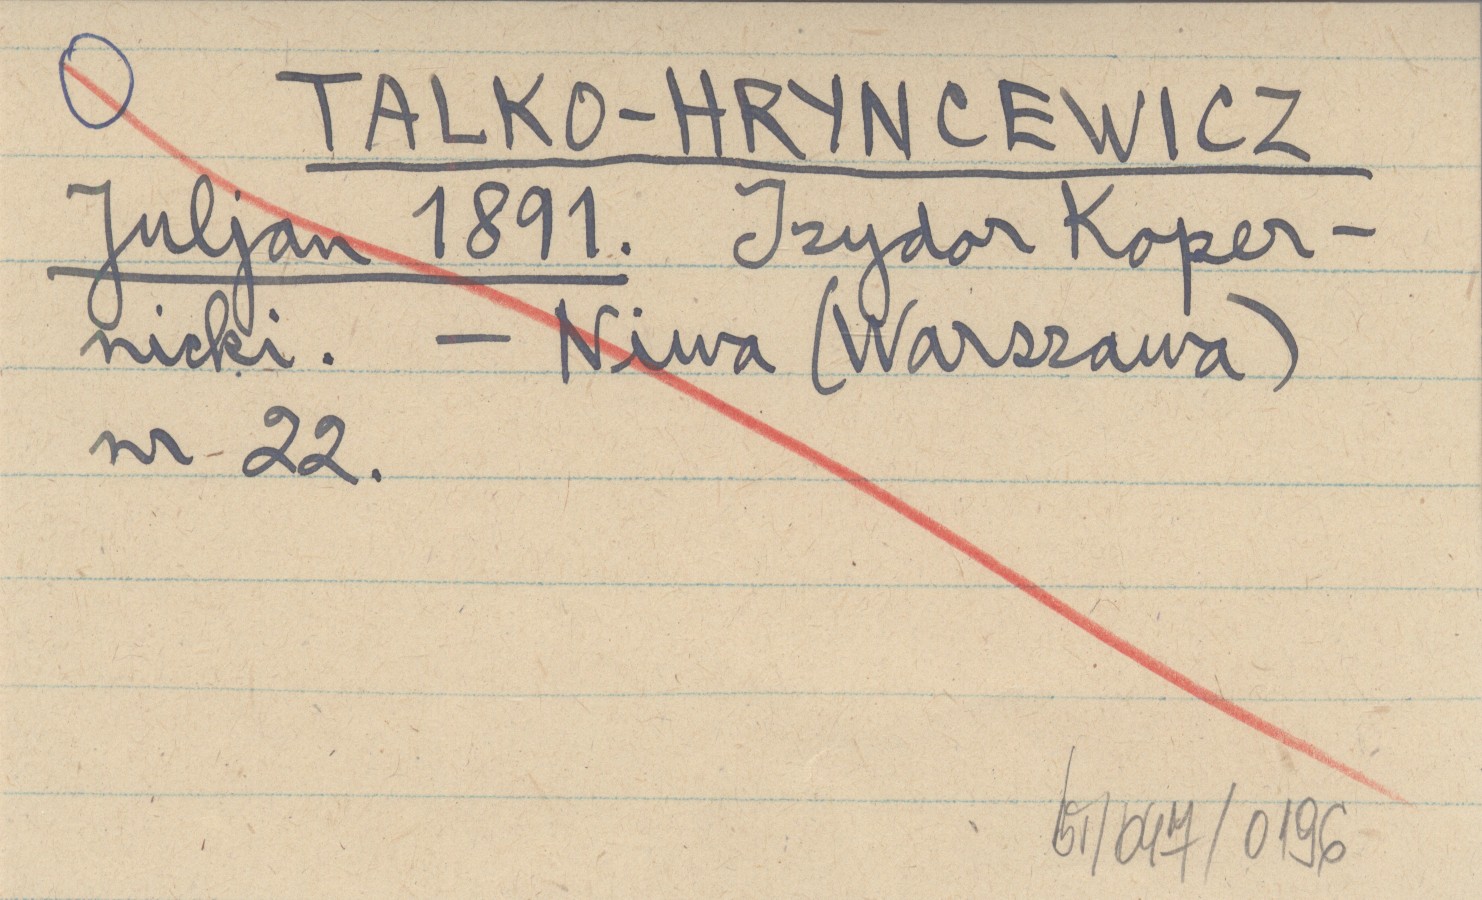 TALKO-HRYNCEWICZ
Juljan 1891. Izydor Koper-
nicki. — Niwa (Warszawa)
nr 22.
/0196